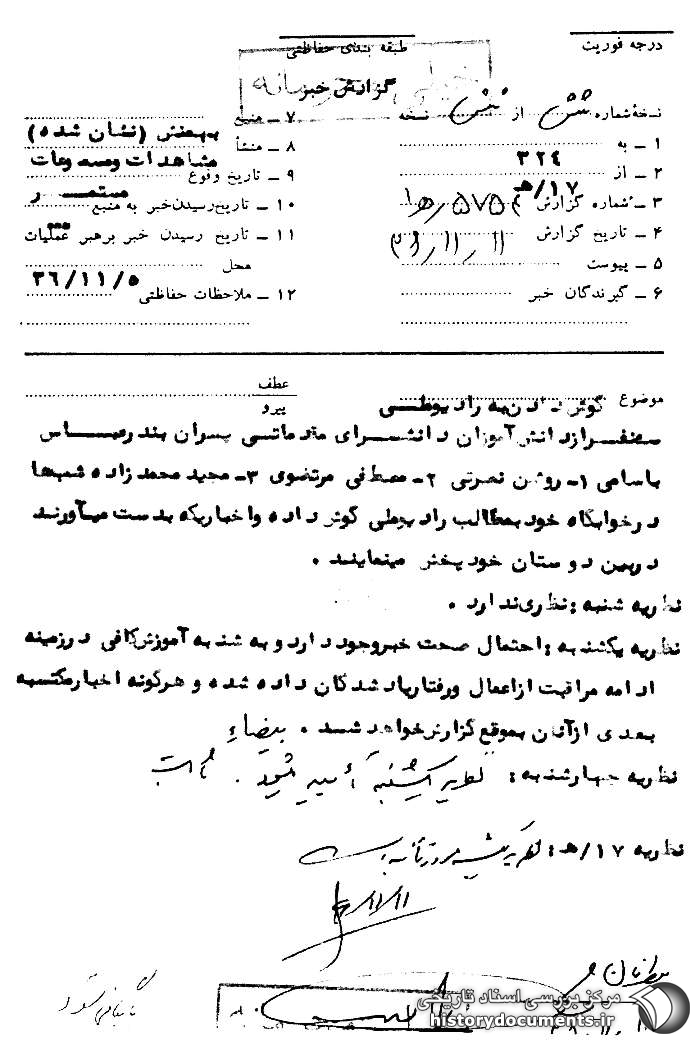 درجه فوریت
طبقه بندی حفاظتی
گزارش خبر
نسخهٔ شماره شش از شش نسخه
۱ – به ۳۲۴
۲ – از ۱۷/هـ
۳ – شماره گزارش
۴ – تاریخ گزارش
۵ – پیوست
۶ – گیرندگان خبر
۷ – منبع بهمنش (نشان شده)
۸ – منشأ مشاهدات ومسموعات
۹ – تاریخ وقوع مستمر
۱۰ – تاریخ رسیدن خبر به منبع
۱۱ – تاریخ رسیدن خبر برهبر عملیات
محل ۳۶/۱۱/۵
۱۲ – ملاحظات حفاظتی
عطف
پیرو
موضوع گوش دادن به رادیو
سه نفر از دانش آموزان دانشسرای مقدماتی پسران بندرعباس
باسامی ۱- روشن نصرتی ۲- مصطفی مرتضوی ۳- مجید محمد زاده شبها
درخوابگاه خود بمطالب رادیو گوش داده واخباریکه بدست میآورند
دربین دوستان خود پخش مینمایند .
نظریه شنبه : نظری ندارد .
نظریه یکشنبه : احتمال صحت خبروجود دارد و به شنبه آموزش کافی درزمینه
ادامه مراقبت ازاعمال ورفتاریاد شدگان داده شده و هرگونه اخبارمکتسبه
بعدی ازآنان بموقع گزارش خواهد شد . بیضاء
نظریه چهارشنبه : نظریه یکشنبه تأیید میشود .
نظریه ۱۷/هـ : نظریه
بایگانی شود
مرکز بررسی اسناد تاریخی
historydocuments.ir